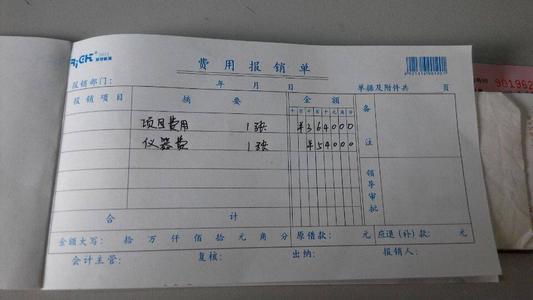 RiCH
费用报销单
报销部门: 年 月 日 单据及附件共 页
报销项目 摘要 金额 备注
十万千百十元角分
项目费用 1张 ¥364000
仪器费 1张 ¥54000
领导审批
合计
金额大写: 拾 万 仟 佰 拾 元 角 分 原借款: 元 应退(补)款: 元
会计主管: 复核: 出纳: 报销人: